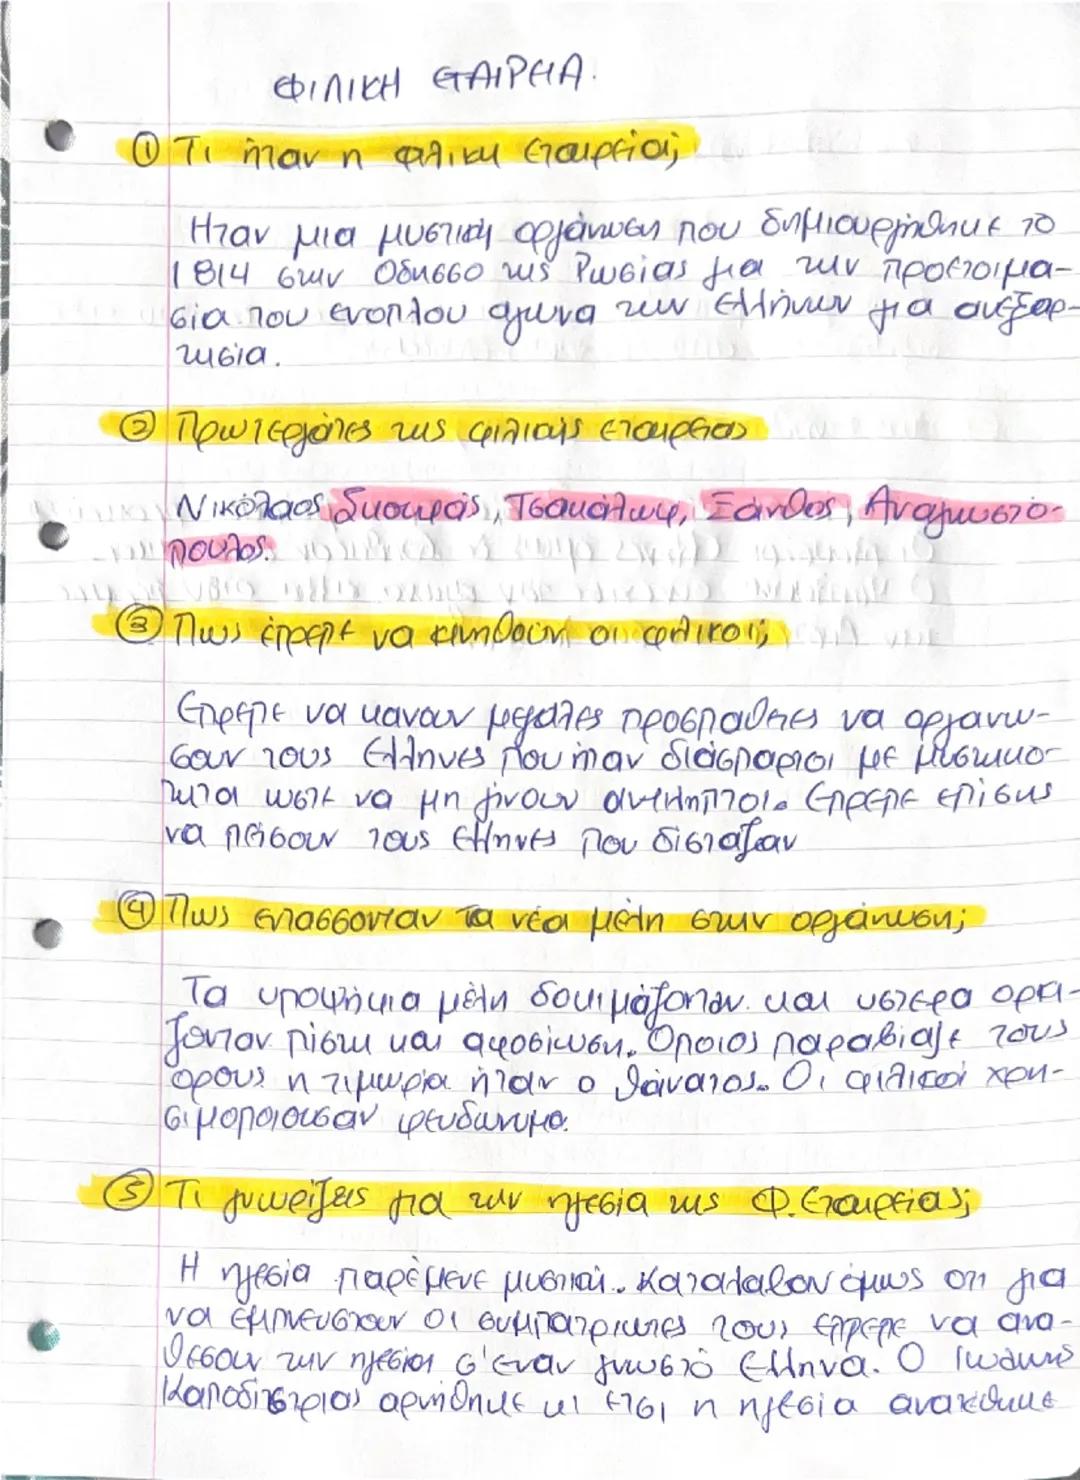 ΦΙΛΙΚΗ ΕΤΑΙΡΕΙΑ.
① Τι ήταν η φιλικη Εταιρεία;
Ηταν μια μυστική οργάνωση που δημιουργήθηκε το
1814 στην Οδησσο της Ρωσίας για την προετοιμα-
σία του ενοπλου αγωνα των Ελλήνων για ανεξαρ-
τησία.
② Πρωτεργάτες της φιλικής εταιρείας
Νικόλαος Σκουφάς, Τσακάλωφ, Ξάνθος, Αναγνωστό-
πουλος.
③ Πως έπρεπε να κινηθούν οι φιλικοί;
Επρεπε να κανουν μεγάλες προσπαθειες να οργανω-
σουν τους Ελληνες που ηταν διάσπαρτοι με μυστικο-
τητα ωστε να μη γίνουν αντιληπτοι. Επρεπε επίσης
να πείσουν τους Ελληνες που δίσταζαν
④ Πως εντασσονταν τα νέα μέλη στην οργάνωση;
Τα υποψήφια μέλη δοκιμάζονταν και υστερα ορκι-
ζονταν πίστη και αφοσίωση. Οποιος παραβιαζε τους
ορους η τιμωρία ήταν ο θάνατος. Οι φιλικοί χρη-
σιμοποιουσαν ψευδωνυμο.
⑤ Τι γνωρίζεις για την ηγεσία της Φ. Εταιρείας;
Η ηγεσία παρέμενε μυστική. Καταλαβαν όμως οτι για
να εμπνευστουν οι συμπατριωτες τους επρεπε να ανα-
θέσουν την ηγεσία σ' εναν γνωστό Ελληνα. Ο Ιωάννης
Καποδίστριας αρνήθηκε κι ετσι η ηγεσία ανατεθηκε